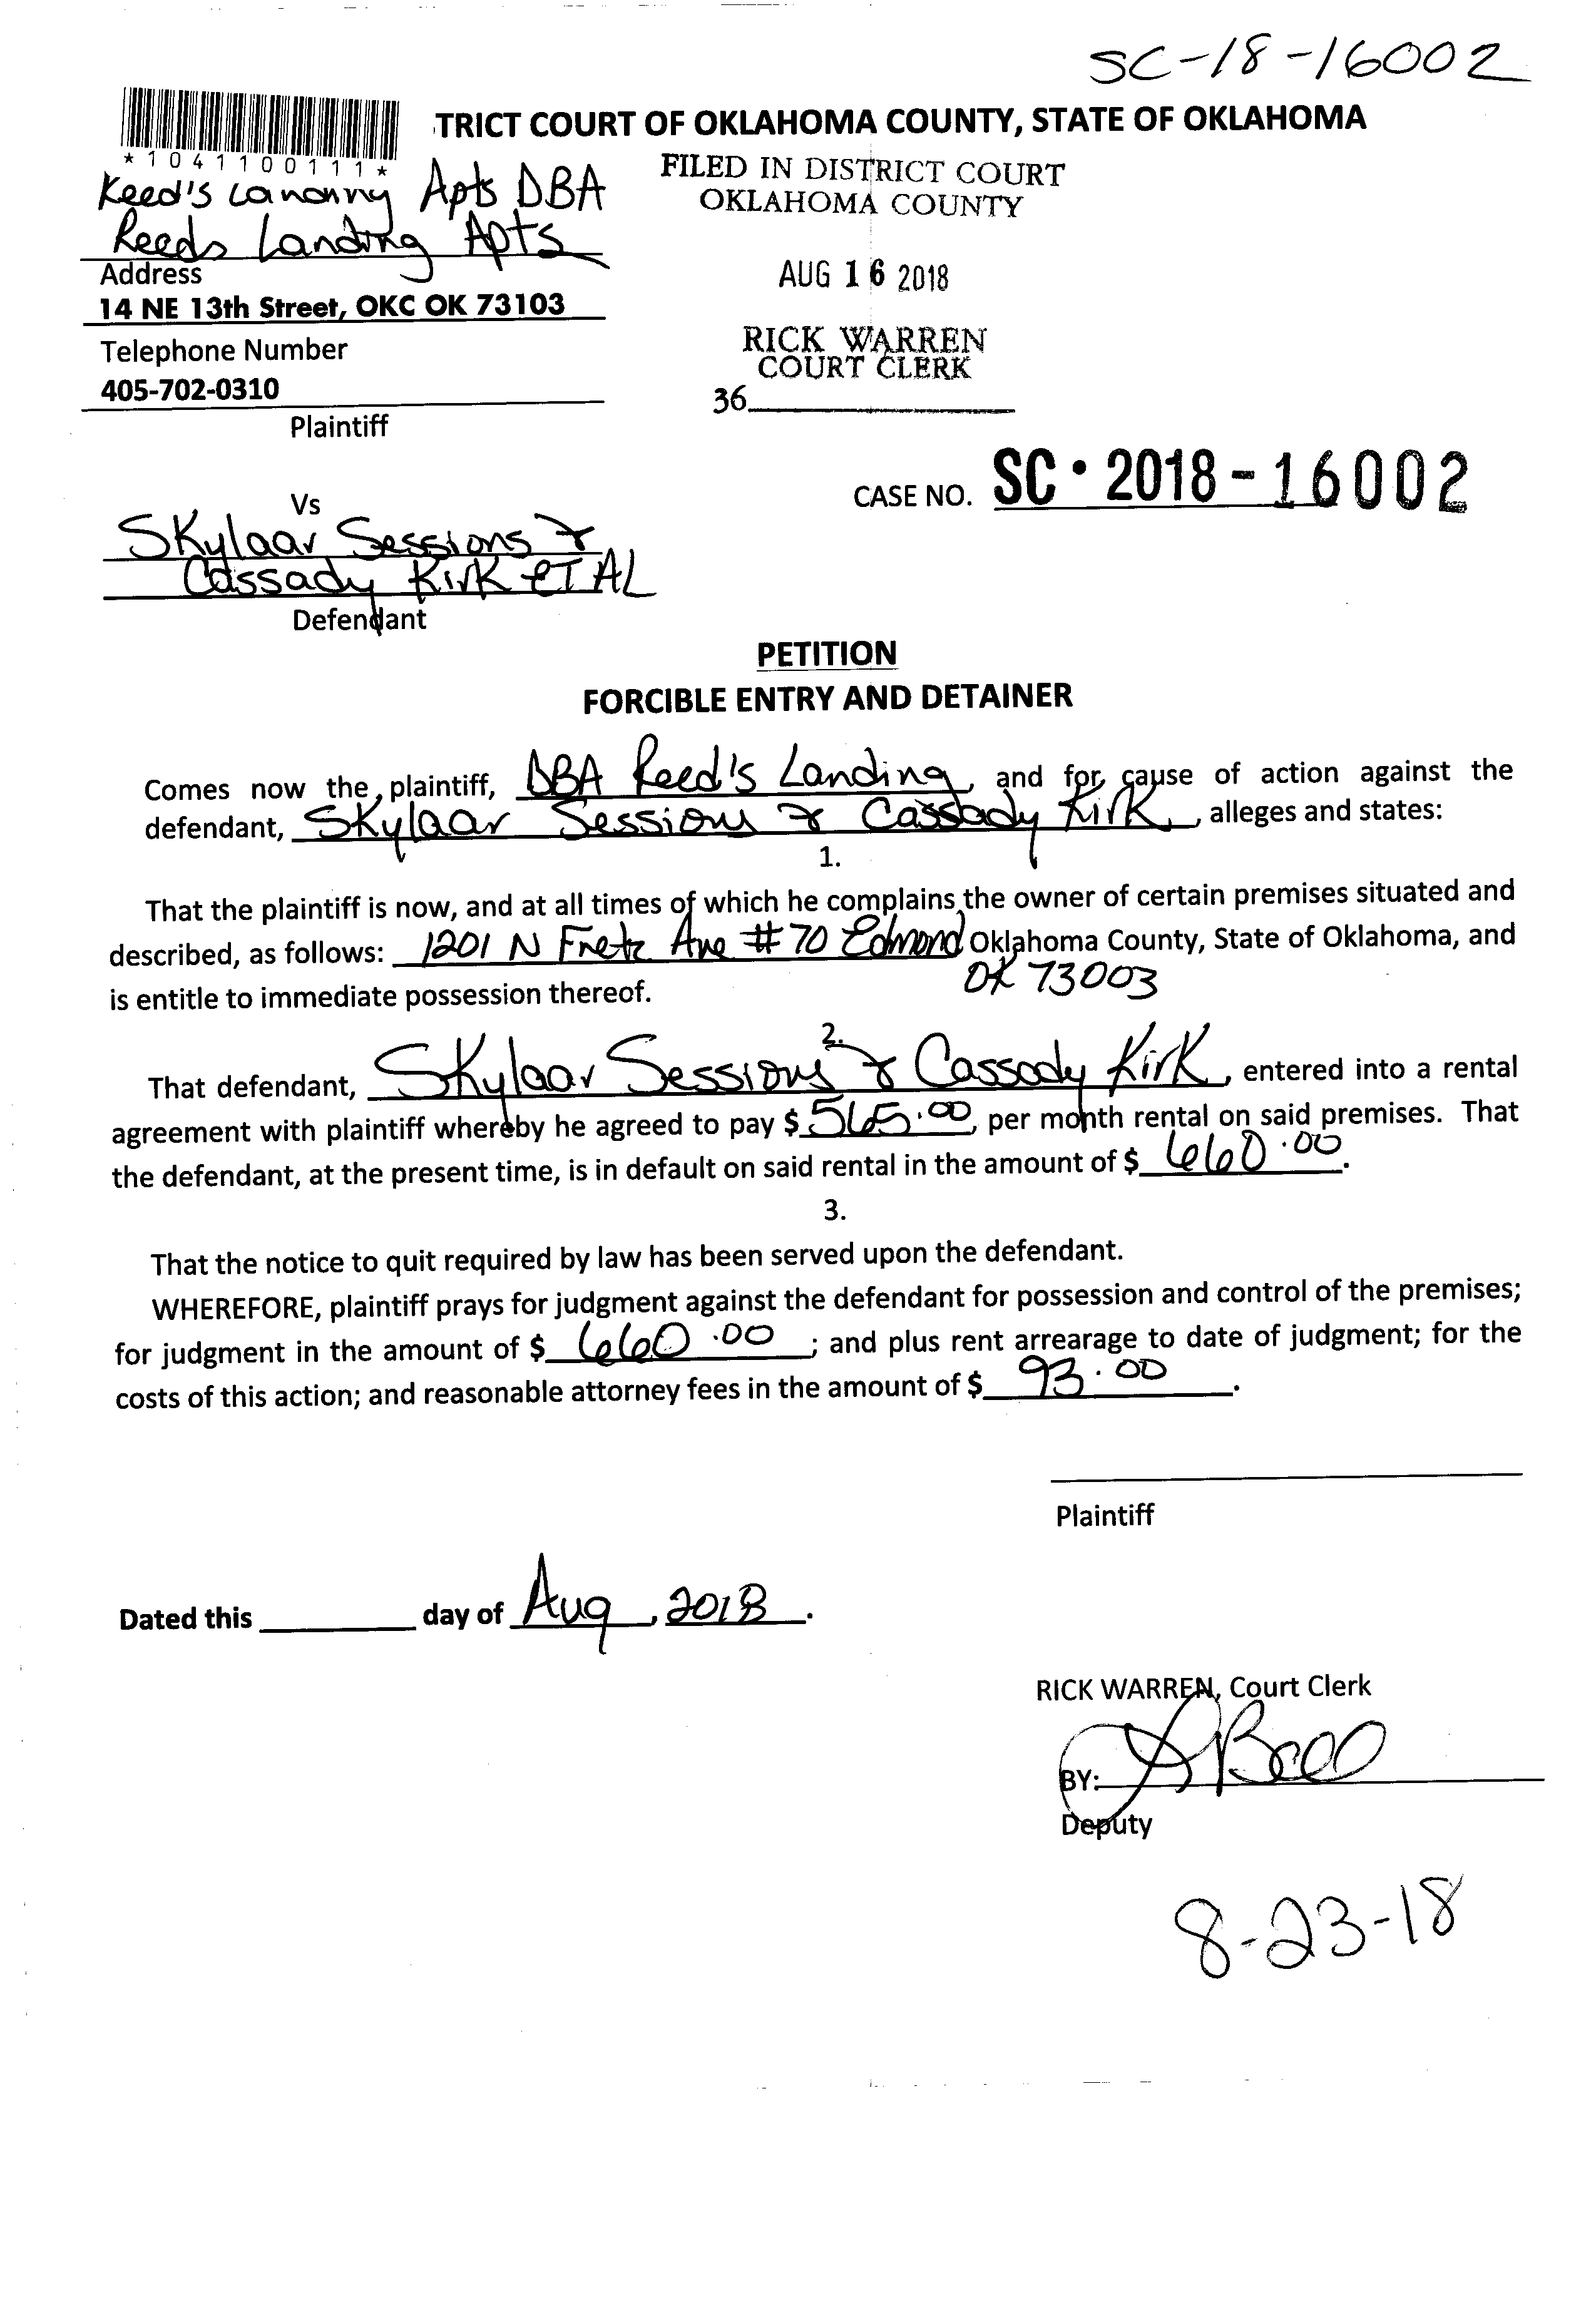 SC-18-16002
TRICT COURT OF OKLAHOMA COUNTY, STATE OF OKLAHOMA
*1041100111*
FILED IN DISTRICT COURT
OKLAHOMA COUNTY
Reed's Landing Apts DBA
Reeds Landing Apts
Address
14 NE 13th Street, OKC OK 73103
AUG 16 2018
Telephone Number
405-702-0310
RICK WARREN
COURT CLERK
36
Plaintiff
Vs
CASE NO. SC • 2018 - 16002
Skylaar Sessions &
Cassady Kirk ET AL
Defendant
PETITION
FORCIBLE ENTRY AND DETAINER
Comes now the plaintiff, DBA Reed's Landing, and for cause of action against the
defendant, Skylaar Sessions & Cassady Kirk, alleges and states:
1.
That the plaintiff is now, and at all times of which he complains the owner of certain premises situated and
described, as follows: 1201 N Fretz Ave #70 Edmond Oklahoma County, State of Oklahoma, and
OK 73003
is entitle to immediate possession thereof.
2.
That defendant, Skylaar Sessions & Cassady Kirk, entered into a rental
agreement with plaintiff whereby he agreed to pay $ 565.00, per month rental on said premises. That
the defendant, at the present time, is in default on said rental in the amount of $ 660.00.
3.
That the notice to quit required by law has been served upon the defendant.
WHEREFORE, plaintiff prays for judgment against the defendant for possession and control of the premises;
for judgment in the amount of $ 660.00; and plus rent arrearage to date of judgment; for the
costs of this action; and reasonable attorney fees in the amount of $ 93.00.
Plaintiff
Dated this ______ day of Aug, 2018.
RICK WARREN, Court Clerk
BY:
Deputy
8-23-18